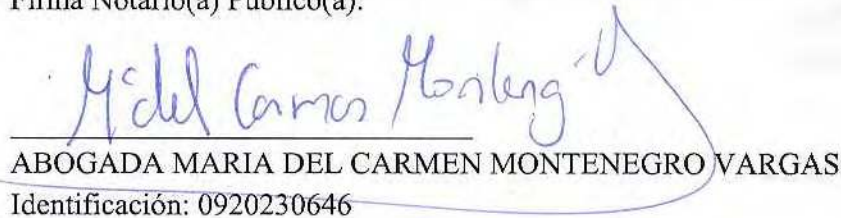 Firma Notario(a) Público(a):
Mª del Carmen Monteng
ABOGADA MARIA DEL CARMEN MONTENEGRO VARGAS
Identificación: 0920230646